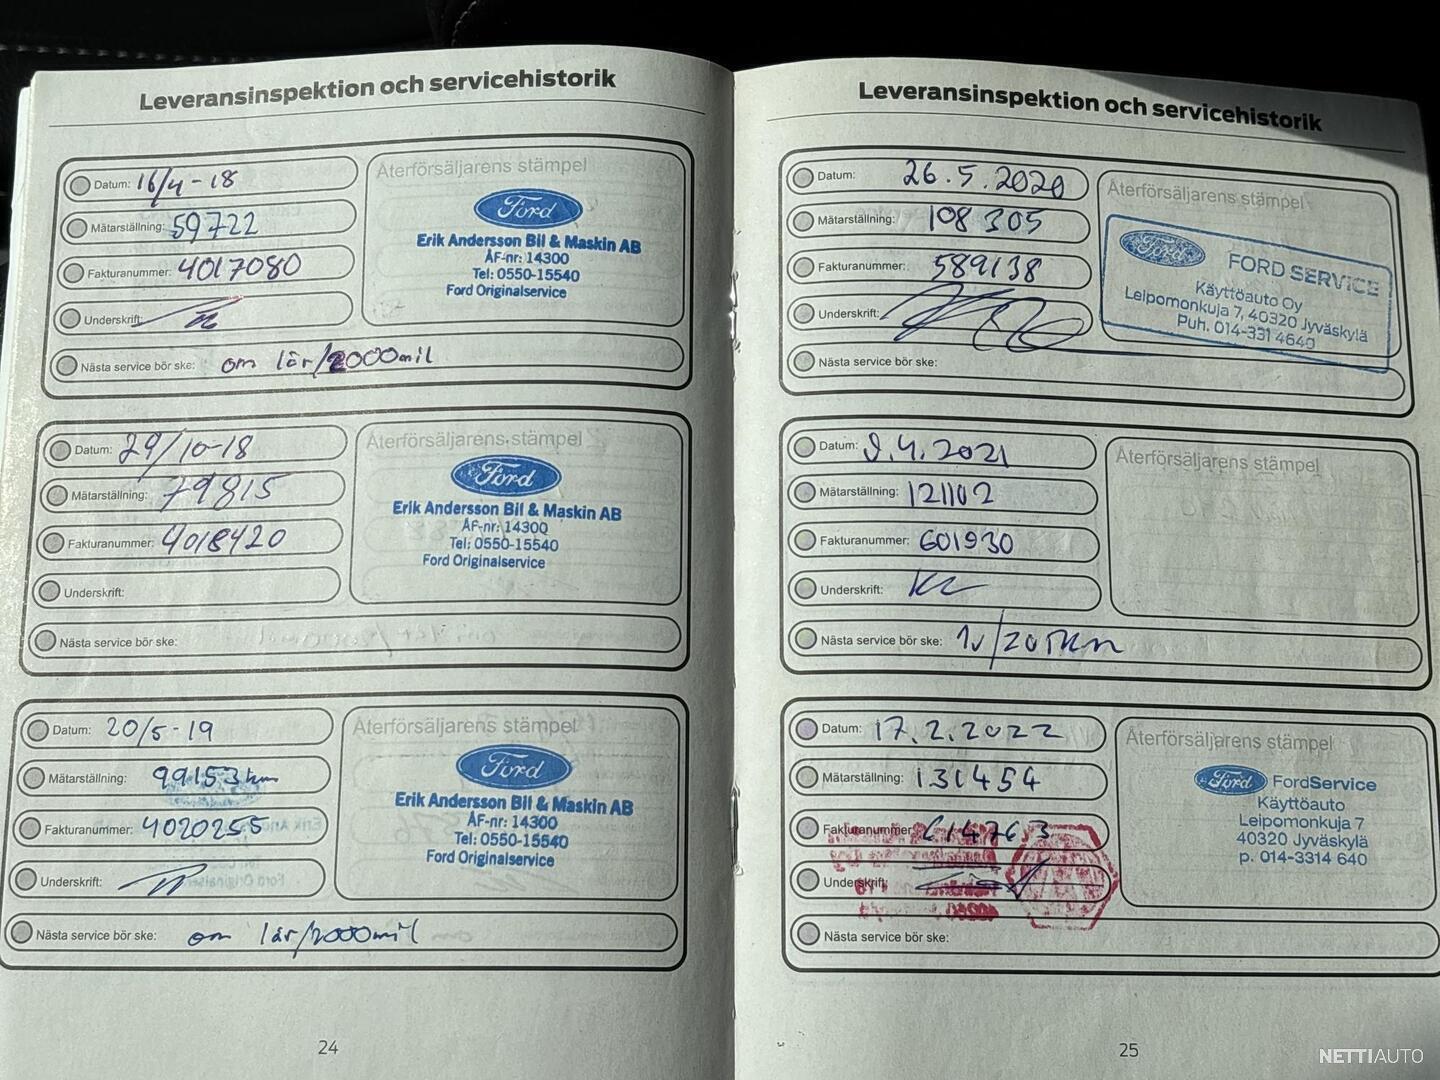 Leveransinspektion och servicehistorik
Datum: 16/4-18
Mätarställning: 59722
Fakturanummer: 4017080
Underskrift:
Nästa service bör ske: om 1år/2000mil
Återförsäljarens stämpel
Ford
Erik Andersson Bil & Maskin AB
ÅF-nr: 14300
Tel: 0550-15540
Ford Originalservice
Datum: 29/10-18
Mätarställning: 79815
Fakturanummer: 4018420
Underskrift:
Nästa service bör ske:
Återförsäljarens stämpel
Ford
Erik Andersson Bil & Maskin AB
ÅF-nr: 14300
Tel: 0550-15540
Ford Originalservice
Datum: 20/5-19
Mätarställning: 99153 km
Fakturanummer: 4020255
Underskrift:
Nästa service bör ske: om 1år/2000mil
Återförsäljarens stämpel
Ford
Erik Andersson Bil & Maskin AB
ÅF-nr: 14300
Tel: 0550-15540
Ford Originalservice
24
Leveransinspektion och servicehistorik
Datum: 26.5.2020
Mätarställning: 108305
Fakturanummer: 589138
Underskrift:
Nästa service bör ske:
Återförsäljarens stämpel
Ford
FORD SERVICE
Käyttöauto Oy
Leipomonkuja 7, 40320 Jyväskylä
Puh. 014-331 4640
Datum: 9.4.2021
Mätarställning: 121102
Fakturanummer: 601930
Underskrift:
Nästa service bör ske: 1v/20Tkm
Återförsäljarens stämpel
Datum: 17.2.2022
Mätarställning: 131454
Fakturanummer: 614763
Underskrift:
Nästa service bör ske:
Återförsäljarens stämpel
Ford
FordService
Käyttöauto
Leipomonkuja 7
40320 Jyväskylä
p. 014-3314 640
25
NETTIAUTO